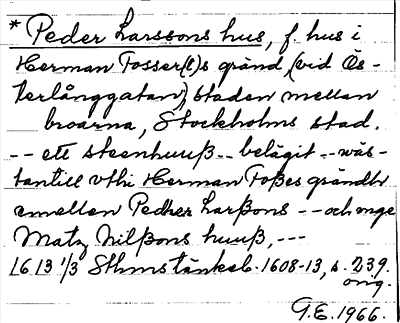 * Peder Larssons hus, f. hus i
Herman Fosser(t)s gränd, (vid Ös-
terlånggatan), staden mellan
broarna, Stockholms stad.
-- ett steenhuuß -- belägit -- wäs-
tantill vthi Herman Foßes grändh
emellen Pedher Larßons -- och
Matz Nilßons huuß, ---
1613 1/3 Sthms tänkeb. 1608-13, s. 239.
orig.
G.E. 1966.